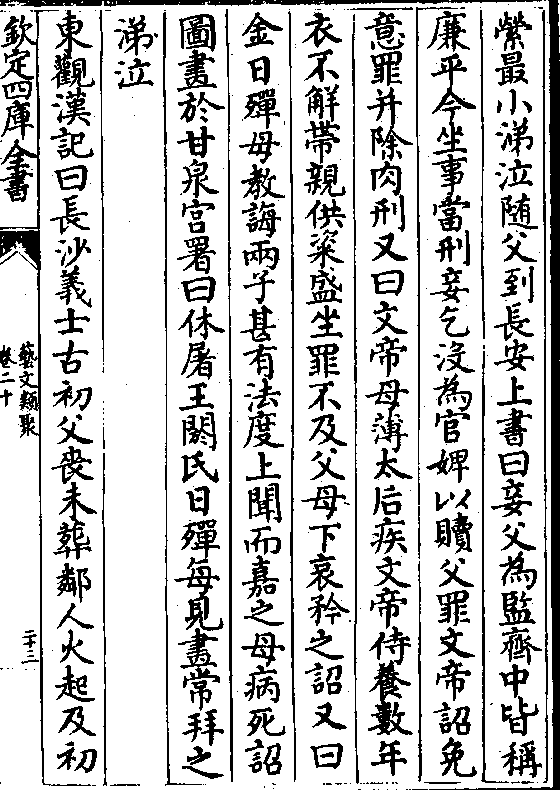 縈最小涕泣随父到長安上書曰妾父為監齊中皆稱
廉平今坐事當刑妾乞沒為官婢以贖父罪文帝詔免
意罪并除肉刑又曰文帝母薄太后疾文帝侍養數年
衣不解帶親供粢盛坐罪不及父母下哀矜之詔又曰
金日殫母教誨兩子甚有法度上聞而嘉之母病死詔
圖畫於甘泉宫署曰休屠王閼氏日殫每見畫常拜之
涕泣
東觀漢記曰長沙義士古初父喪未葬鄰人火起及初
欽定四庫全書
藝文類聚
卷二十
二十三